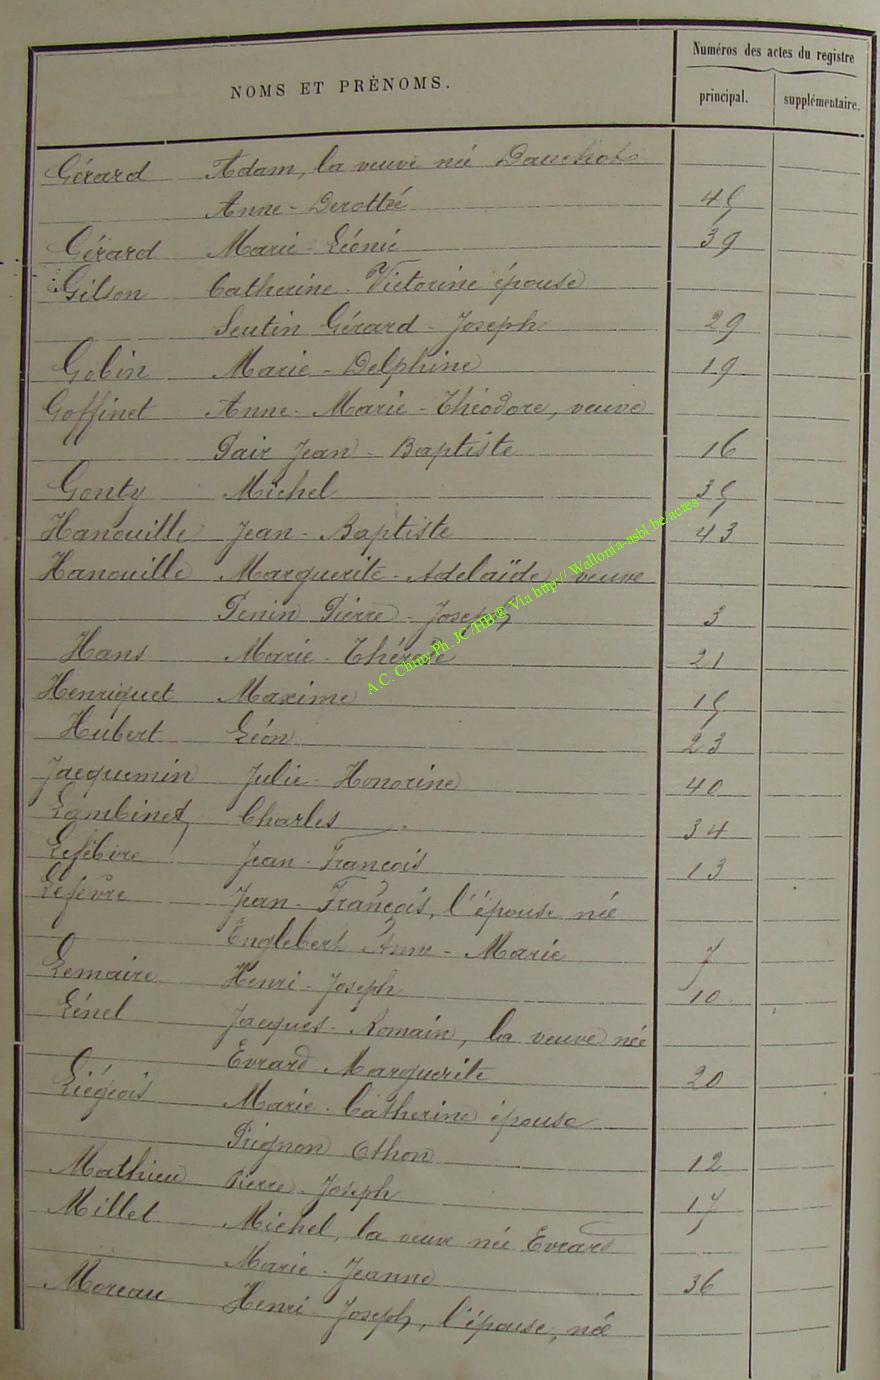 Numéros des actes du registre
NOMS ET PRÉNOMS.
principal. supplémentaire.
Gérard Adam, la veuve née Dauchot
Anne-Derottée 45
Gérard Marie-Léonie 39
Gilson Catherine-Victorine épouse
Seutin Gérard-Joseph 29
Gobin Marie-Delphine 19
Goffinet Anne-Marie-Théodore, veuve
Pair Jean-Baptiste 16
Gonty Michel 35
Hanouille Jean-Baptiste 43
Hanouille Marguerite-Adelaïde, veuve
Penin Pierre-Joseph 3
Hans Marie-Thérèse 21
Henriquet Maxime 15
Hubert Léon 23
Jacquemin Julie-Honorine 40
Lambinet Charles 34
Lefèbvre Jean-François 13
Lefèvre Jean-François, l'épouse née
Englebert Anne-Marie 7
Lemaire Henri-Joseph 10
Lénel Jacques-Romain, la veuve née
Evrard Marguerite 20
Liégeois Marie-Catherine épouse
Pignon Othon 12
Mathieu Pierre-Joseph 17
Millet Michel, la veuve née Evrard
Marie-Jeanne 36
Moreau Henri-Joseph, l'épouse, née
A.C. Chiny Ph. JC/HB® Via http://Wallonia-asbl.be/actes